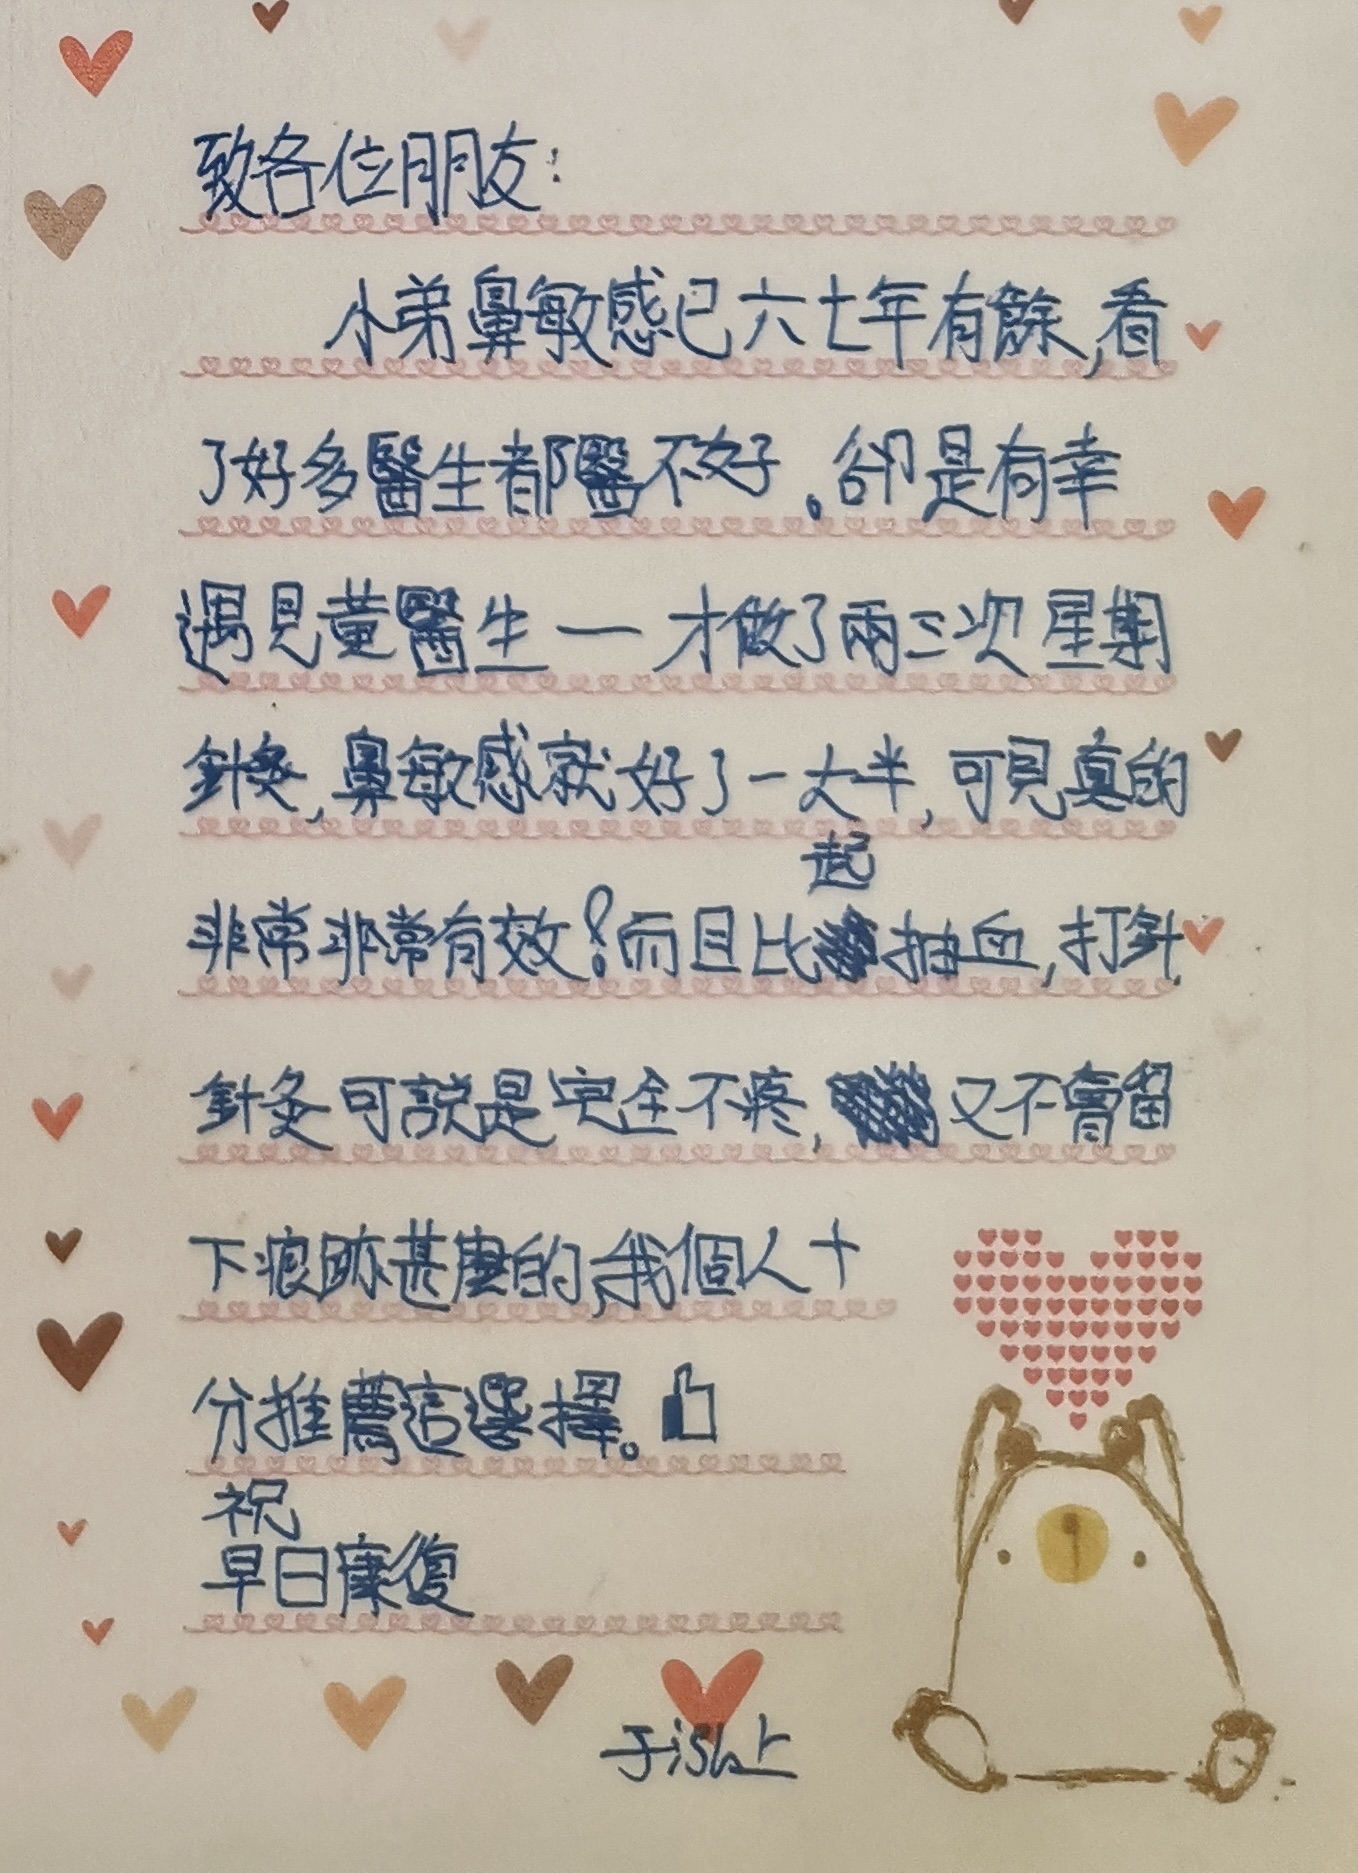 致各位朋友:
小弟鼻敏感已六七年有餘,看
了好多醫生都醫不好。卻是有幸
遇見黃醫生一才做了兩三次星期
針灸,鼻敏感就好了一大半,可見真的
非常非常有效!而且比起抽血,打針
針灸可說是完全不疼,又不會留
下痕跡甚麼的,我個人十
分推薦這選擇。
祝
早日康復
上